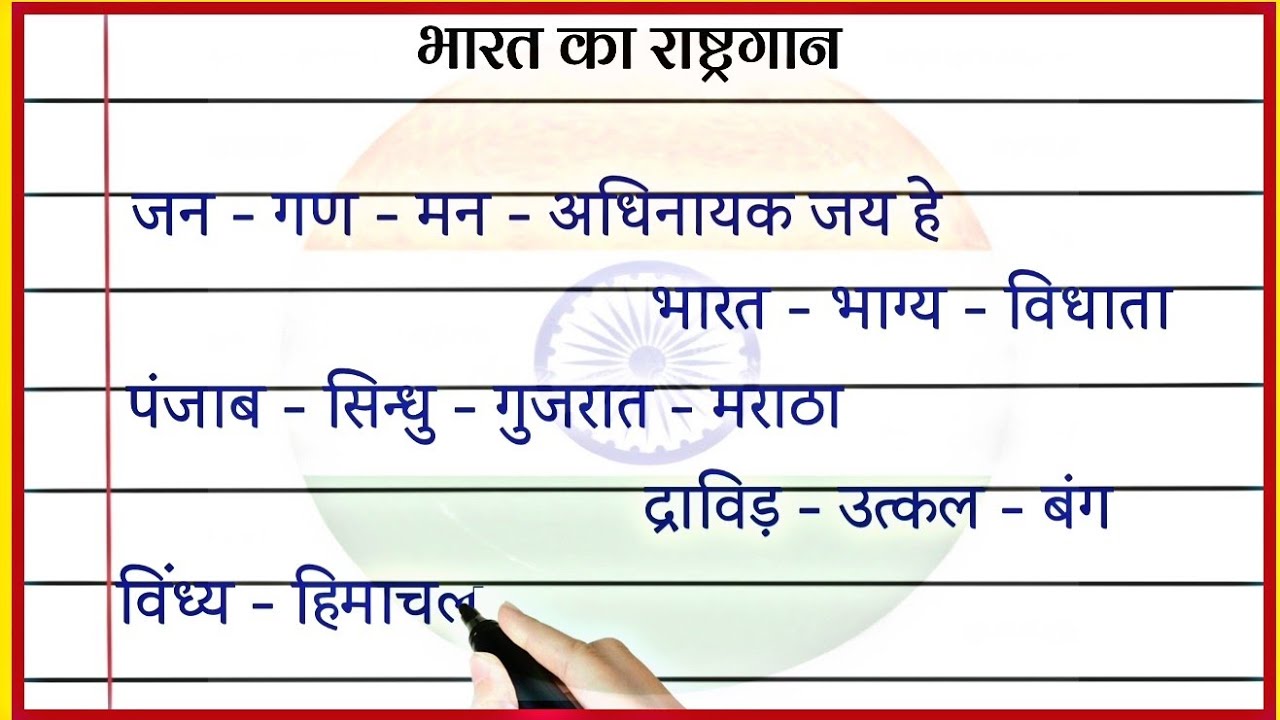 भारत का राष्ट्रगान
जन - गण - मन - अधिनायक जय हे
भारत - भाग्य - विधाता
पंजाब - सिन्धु - गुजरात - मराठा
द्राविड़ - उत्कल - बंग
विंध्य - हिमाचल